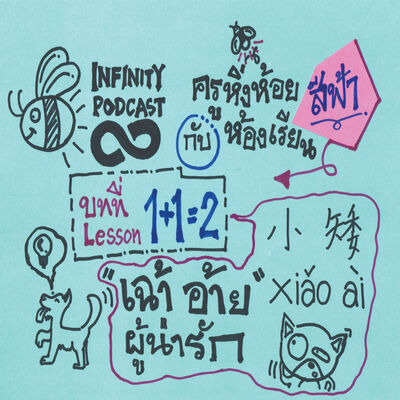 INFINITY
PODCAST
ครูหิ่งห้อย
กับ
ห้องเรียน
สีฟ้า
บทที่
Lesson
1+1=2
小矮
xiǎo ài
"เฉ้า อ้าย"
ผู้น่ารัก